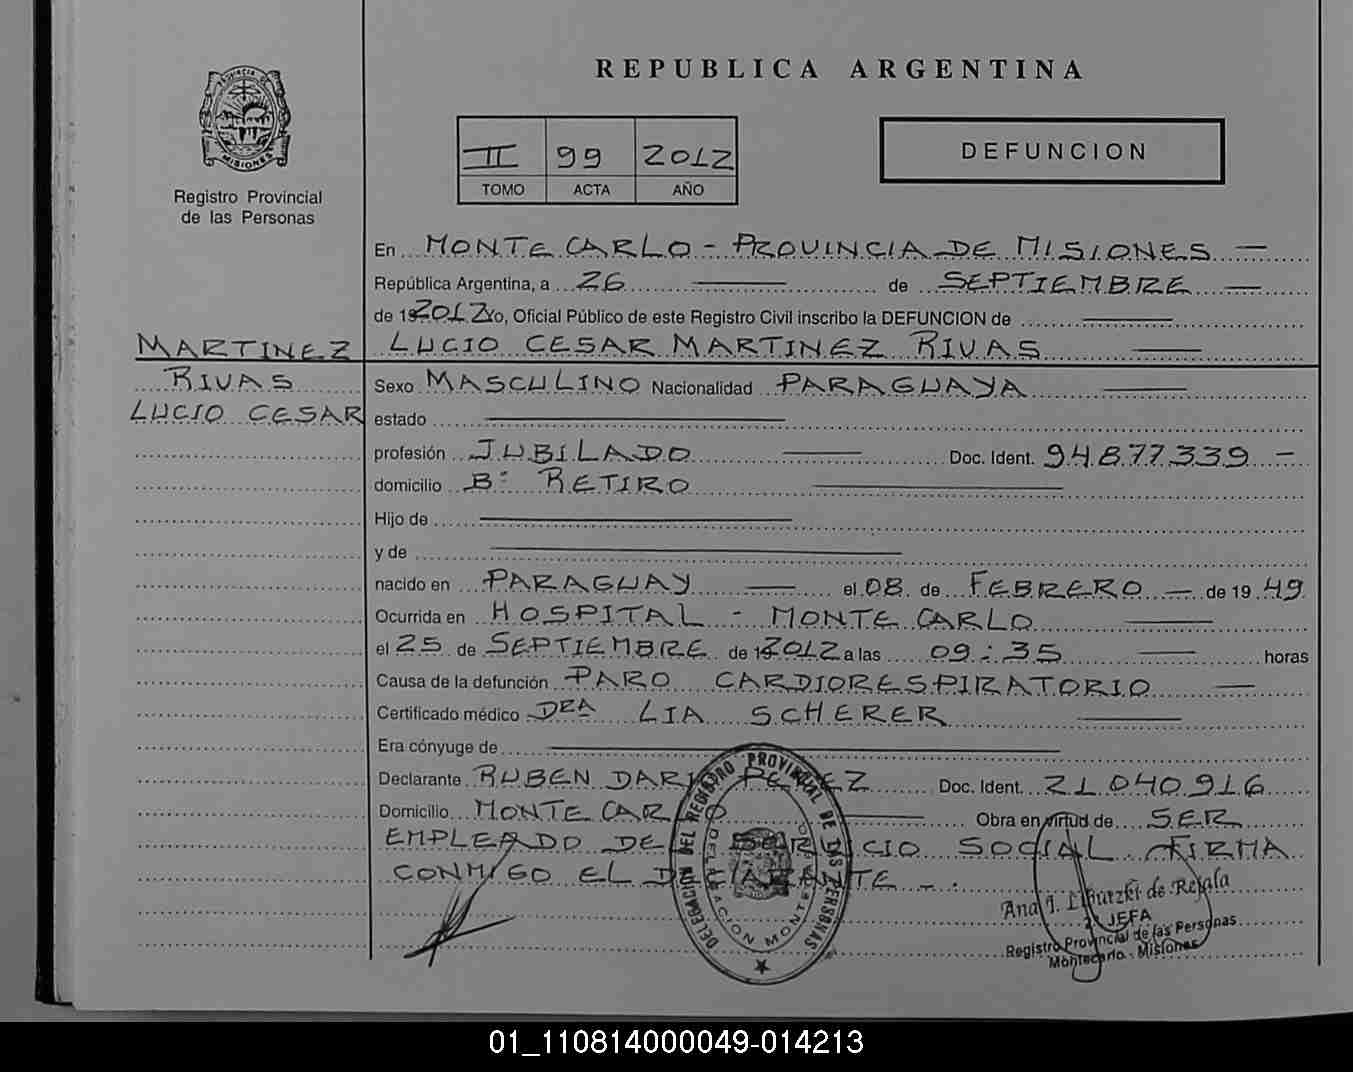 REPUBLICA ARGENTINA
PROVINCIA DE
MISIONES
Registro Provincial
de las Personas
II 99 2012
TOMO ACTA AÑO
DEFUNCION
En MONTE CARLO - PROVINCIA DE MISIONES —
República Argentina, a 26 — de SEPTIEMBRE —
de 19 2012 Yo, Oficial Público de este Registro Civil inscribo la DEFUNCION de —
MARTINEZ
RIVAS
LUCIO CESAR
LUCIO CESAR MARTINEZ RIVAS —
Sexo MASCULINO Nacionalidad PARAGUAYA —
estado —
profesión JUBILADO — Doc. Ident. 94.877.339 -
domicilio Bº RETIRO —
Hijo de —
y de —
nacido en PARAGUAY — el 08 de FEBRERO — de 19 49
Ocurrida en HOSPITAL - MONTE CARLO —
el 25 de SEPTIEMBRE de 19 2012 a las 09:35 — horas
Causa de la defunción PARO CARDIORESPIRATORIO —
Certificado médico DRA LIA SCHERER —
Era cónyuge de —
Declarante RUBEN DARIO PEREZ Doc. Ident. 21.040.916
Domicilio MONTE CARLO — Obra en virtud de SER
EMPLEADO DEL SERVICIO SOCIAL FIRMA
CONMIGO EL DECLARANTE - .
DELEGACION DEL REGISTRO PROVINCIAL DE LAS PERSONAS
DELEGACION MONTECARLO
Ana J. de Rejala
JEFA
Registro Provincial de las Personas
Montecarlo - Misiones
01_110814000049-014213